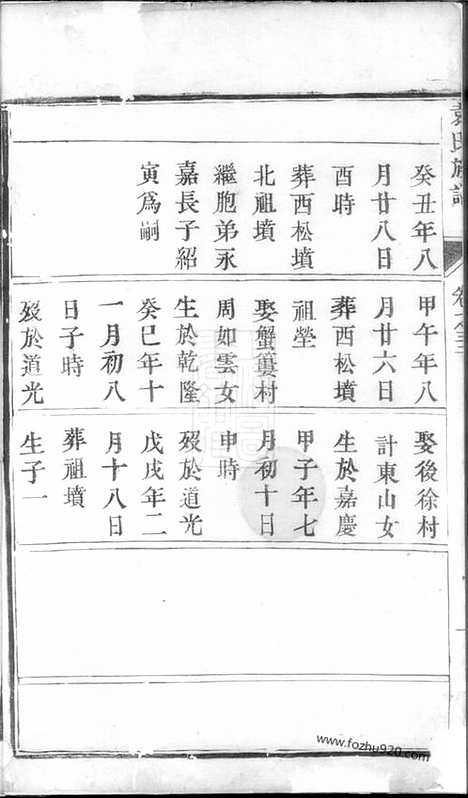 袁氏族譜
癸丑年八
月廿八日
酉時
葬西松墳
北祖墳
繼胞弟永
嘉長子紹
寅爲嗣
甲午年八
月廿六日
葬西松墳
祖塋
娶蟹簍村
周如雲女
生於乾隆
癸巳年十
一月初八
日子時
歿於道光
娶後徐村
計東山女
生於嘉慶
甲子年七
月初十日
申時
歿於道光
戊戌年二
月十八日
葬祖墳
生子一
www.fozhu920.com